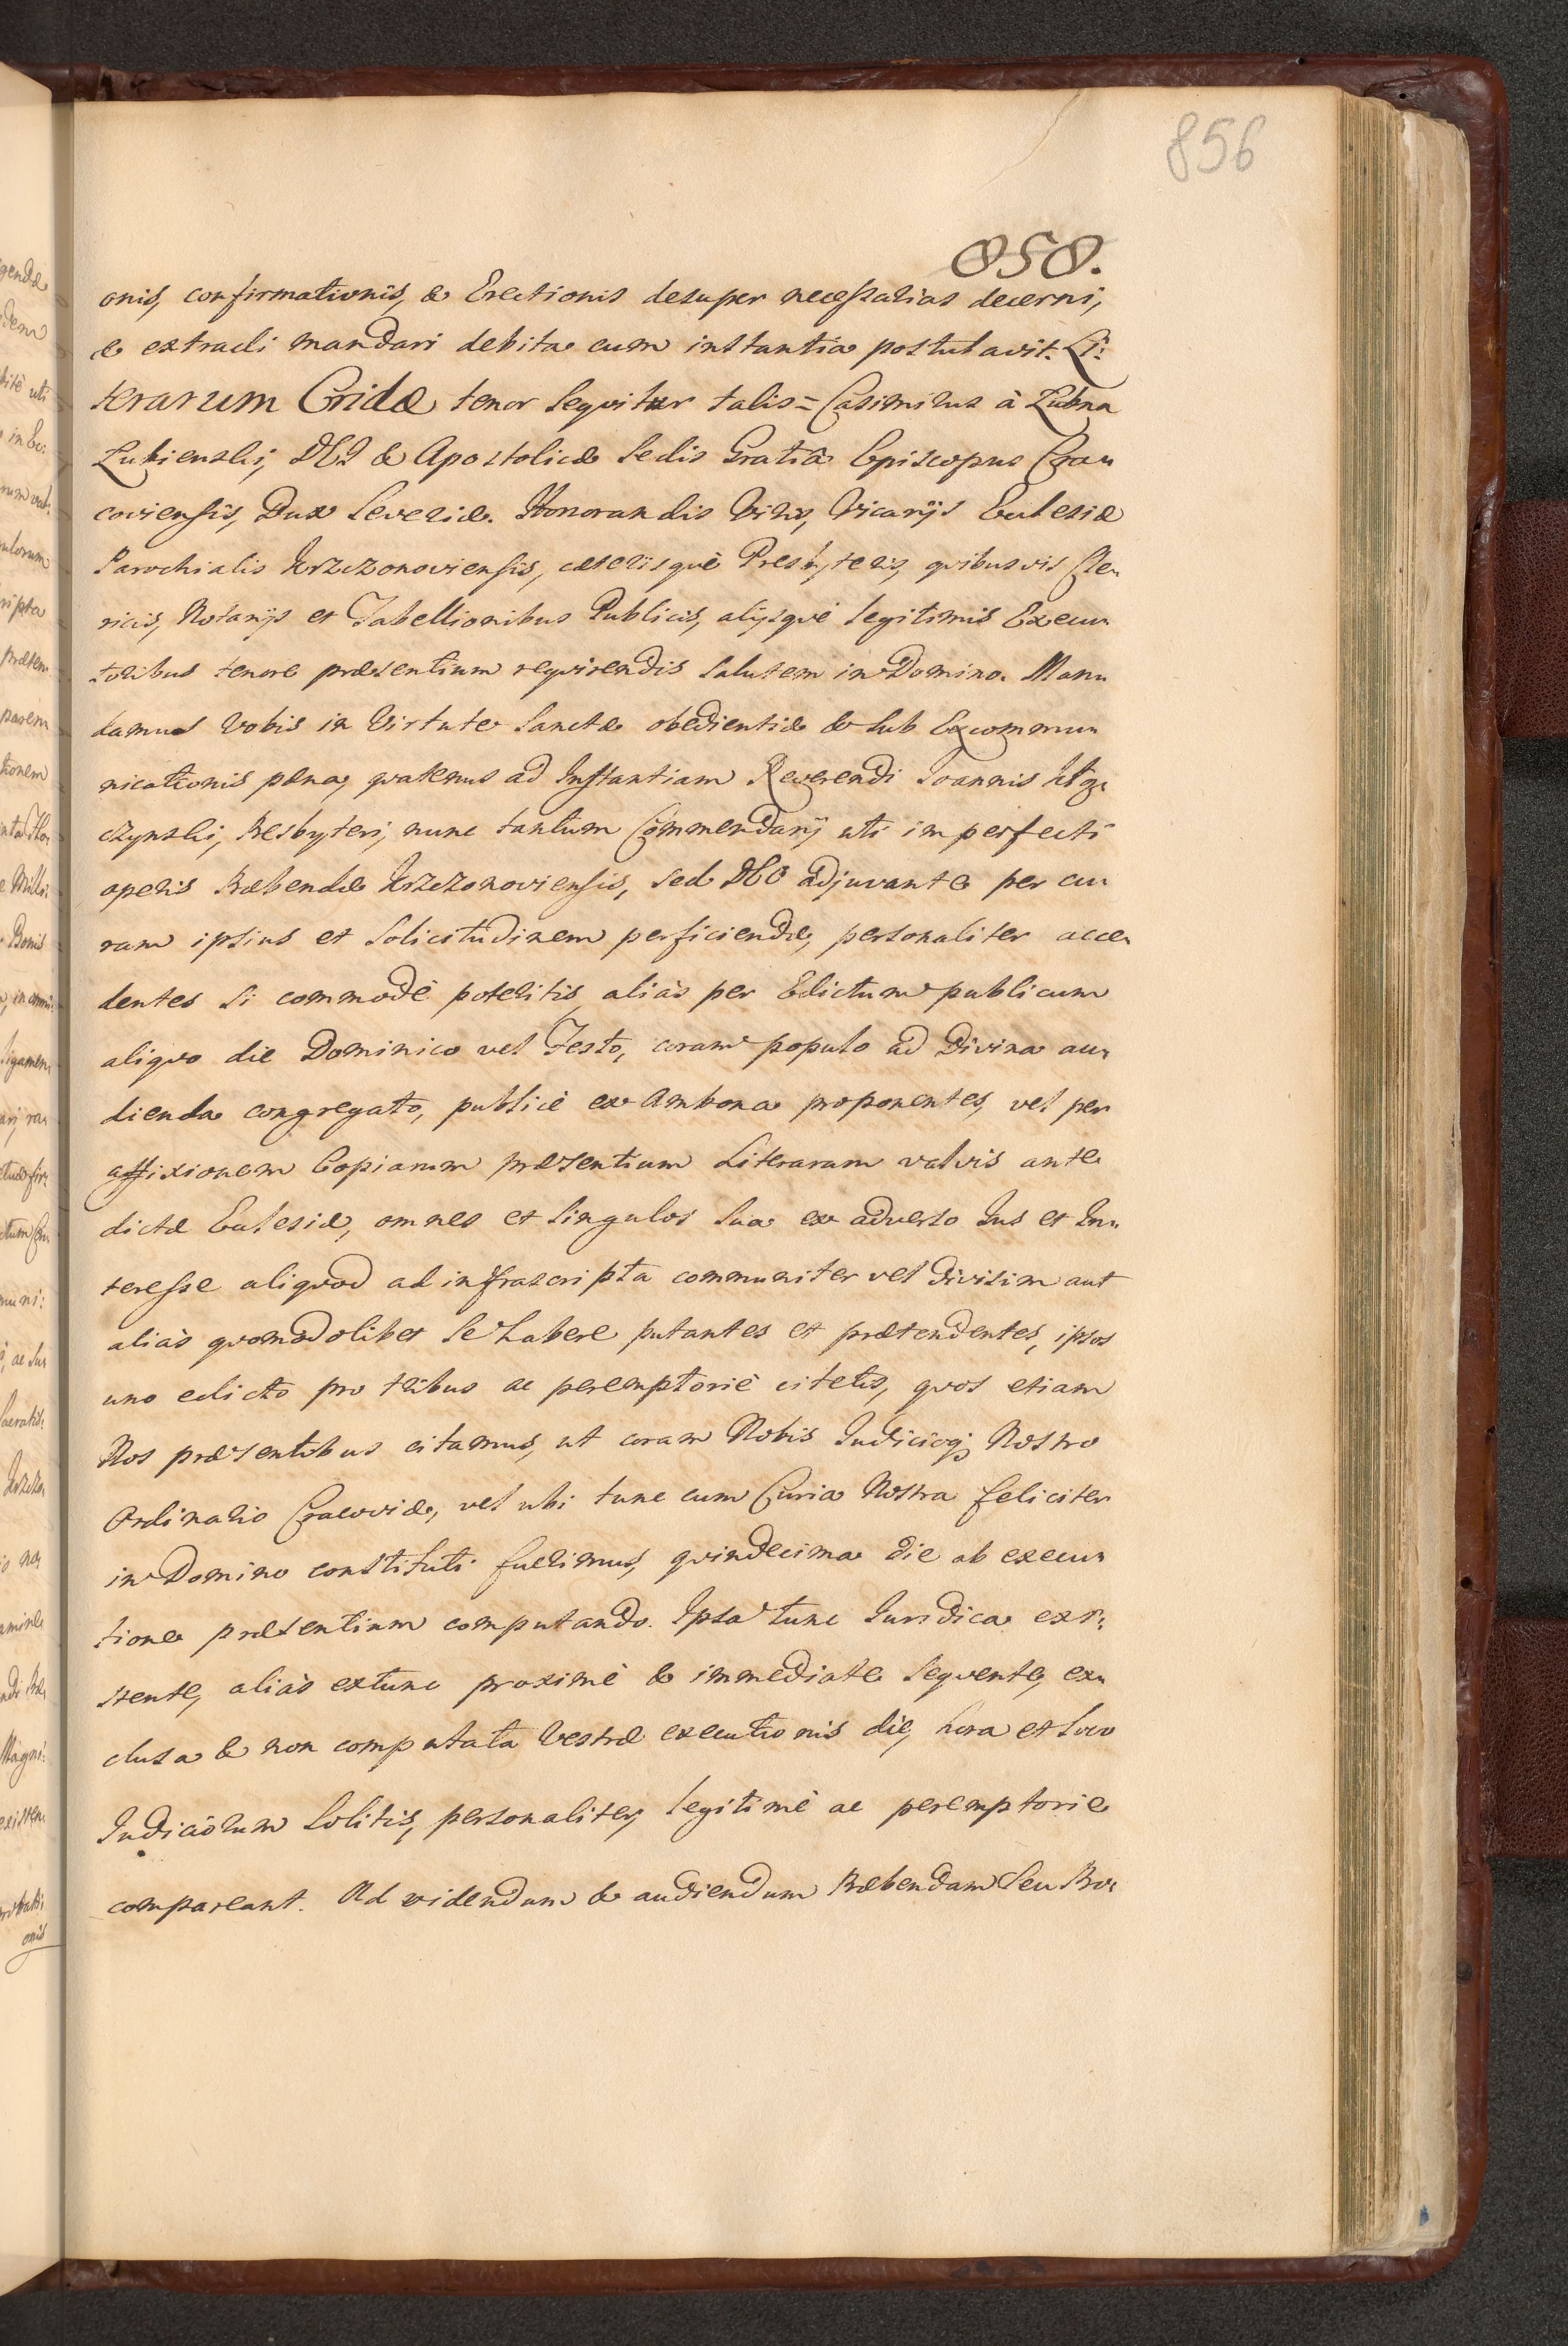 856
858.
onis, confirmationis, & Erectionis desuper necessarias decerni,
& extradi mandari debita cum instantia postulavit. Li:
terarum Cridæ tenor sequitur talis = Casimirus à Lubna
Lubienski, DEI & Apostolicæ Sedis Gratiâ Episcopus Cra„
coviensis, Dux Severiæ. Honorandis Viris, Vicarijs Ecclesiæ
Parochialis Krzczonoviensis, cæterisquè Presbyteris, quibusvis Cle„
ricis, Notarijs et Tabellionibus Publicis, alijsquè legitimis Execu„
toribus tenore præsentium requirendis Salutem in Domino. Man„
damus Vobis in Virtute Sanctæ obedientiæ & sub Excommu„
nicationis pæna, quatenus ad Instantiam Reverendi Joannis
czynski, Presbyteri, nunc tantum Commendarij uti imperfecti
operis Præbendæ Krzczonoviensis, sed DEO adjuvante per cu„
ram ipsius et Solicitudinem perficiendæ, personaliter acce„
dentes si commodè poteritis, aliàs per Edictum publicum
aliquo die Dominico vel Festo, coram populo ad Divina au„
dienda congregato, publicè ex Ambona proponentes, vel per
affixionem Copiarum præsentium Literarum valvis ante
dictæ Ecclesiæ, omnes et singulos sua ex adverso Jus et In„
teresse aliquod ad infrascripta communiter vel divisim aut
aliàs quomodolibet se habere putantes et prætendentes, ipsos
uno edicto pro tribus ac peremptoriè citetis, quos etiam
Nos præsentibus citamus, ut coram Nobis Judicioq; Nostro
Ordinario Cracoviæ, vel ubi tunc cum Curia Nostra feliciter
in Domino constituti fuerimus, quindecima die ab execu„
tione præsentium computando. Ipsa tunc Juridica exi„
stente, aliàs extunc proximè & immediate sequente, ex„
clusa & non computata Vestræ executionis die, hora et loco
Judiciorum solitis, personaliter, legitimè ac peremptorie
compareant. Ad videndum & audiendum Præbendam seu Bo„